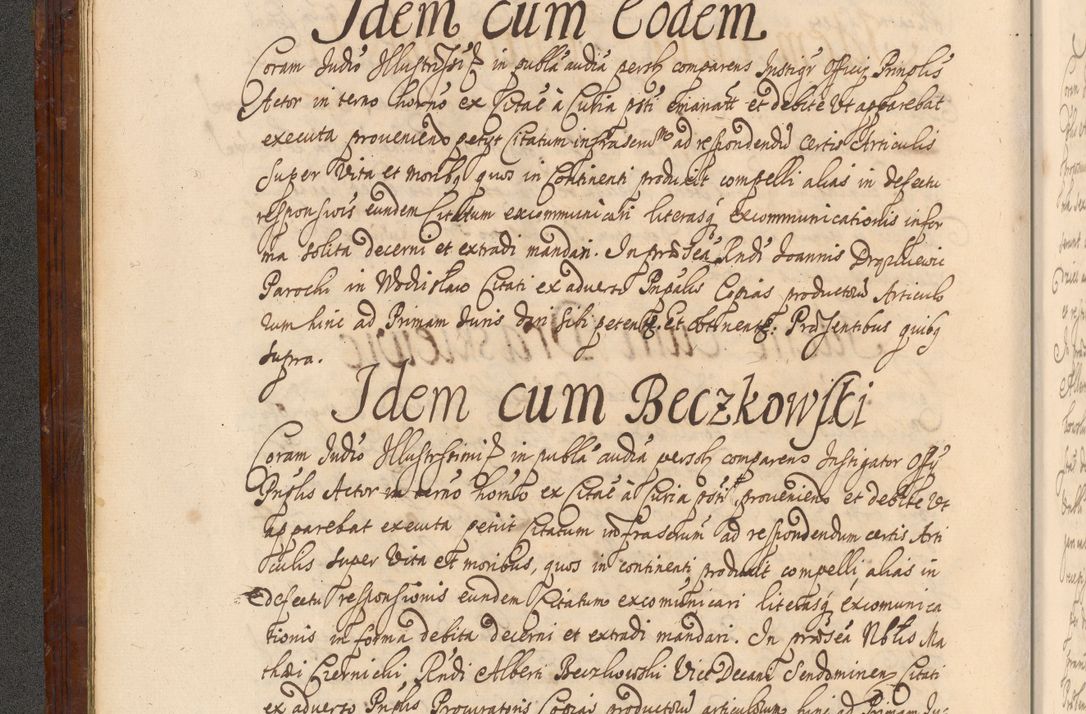 Idem cum Eodem
Coram Judio Illustrissi in publa audia persh comparens Instigr Officy Prinplis
Actor in terno horno ex Citae à Curia psti emanatt et debite Vt apparebat
executa proveniendo petyt Citatum infrascru ad respondendū certis Articulis
Super Vita et moribg quos in Continenti produxit compelli alias in defectu
responsiois eundem Citatum excommunicari literasq excommunicationis infor
ma solita decerni et extradi mandari. In prōsēa Rndi Joannis
Parochi in Wodislaw Citati ex adverso Pnpalis Copias productorū Articulo
rum hinc ad Primam Juris dari sibi petent. Et obtinent. Prōsentibus quibg
supra.
Idem cum Beczkowski
Coram Judio Illustrissimi in publa audia persoh comparens Instigator Offy
Pnplis Actor in terno horno ex Citae à Curia psti proveniendo et debite Vt
apparebat executa petiit Citatum infrascrum ad respondendum certis Arti
culis super Vita et moribus, quos in continenti produxit compelli, alias in
defectu responsionis eundem Citatum excomunicari literasq excomunica
tionis in forma debita decerni et extradi mandari. In prōsēa Nblis Ma
thæi Ciernicki, Rndi Alberti Beczkowski Vice Decani Sendominen Citati
ex adverso Pnplis Procuratoris Copias productorū articulorum hinc ad Primam Ju-